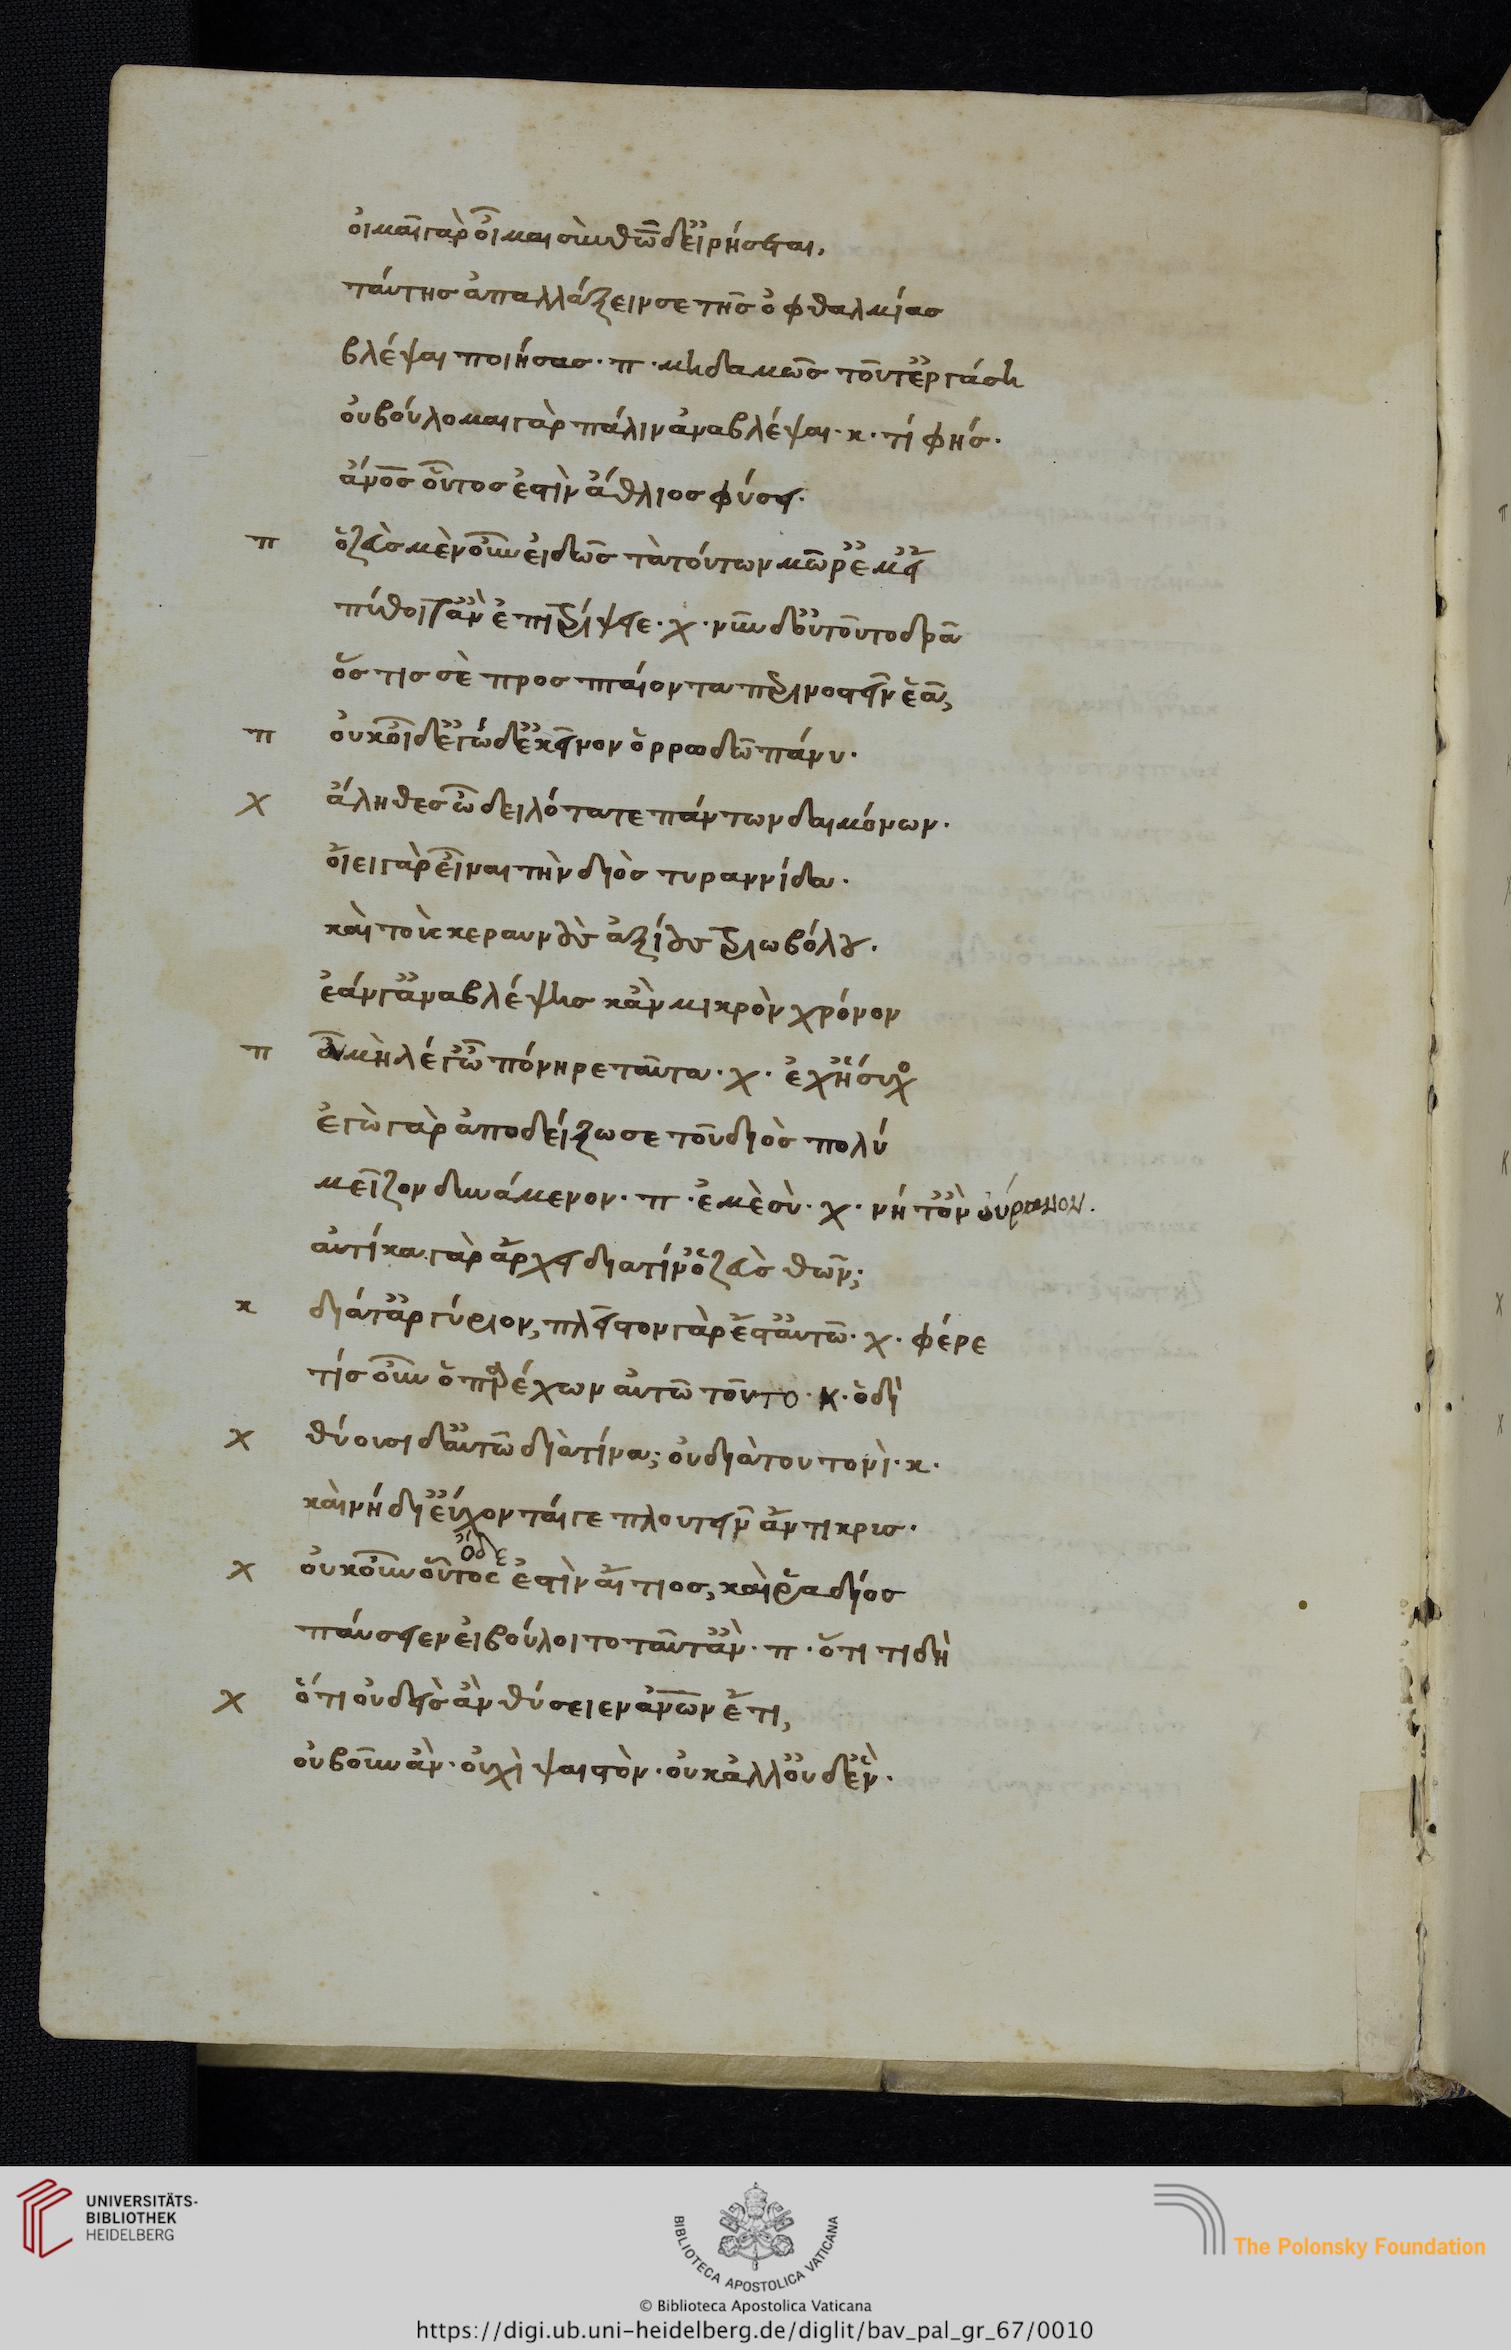 οἶμαι γὰρ οἶμαι σὺν θεῶ δ' εἰρήσεται,
ταύτης ἀπαλλάξειν σε τῆς ὀφθαλμίας
βλέψαι ποιήσας· π· μηδαμῶς τοῦτ' ἐργάση
οὐ βούλομαι γὰρ πάλιν ἀναβλέψαι· κ· τί φής·
ἄνος οὗτος ἐστὶν ἄθλιος φύσει·
π ὁ ζεὺς μὲν οὖν εἰδὼς τὰ τούτων μῶρ' ἔμ' εἰ
πύθοιτ' ἂν ἐπιτρίψειε· χ· νῦν δ' οὐ τοῦτο δρᾶ
ὅστις σὲ προσπταίοντα περινοστεῖν ἐᾶ,
π οὐκ οἶδ' ἐγὼ δ' ἐκεῖνον ὀρρωδῶ πάνυ·
χ ἄληθες ὦ δειλότατε πάντων δαιμόνων·
οἴει γὰρ εἶναι τὴν διὸς τυραννίδα·
καὶ τοὺς κεραυνοὺς ἀξίους τριωβόλου·
ἐάν γ' ἀναβλέψης κἂν μικρὸν χρόνον
π ἆ μὴ λέγ' ὦ πόνηρε ταῦτα· χ· ἔχ' ἥσυχο
ἐγὼ γὰρ ἀποδείξω σε τοῦ διὸς πολύ
μεῖζον δυνάμενον· π· ἐμὲ σύ· χ· νή τὸν οὐρανον.
αὐτίκα γὰρ ἄρχει διατίν' ὁ ζεὺς θεῶν;
κ διά τ' ἀργύριον, πλεῖστον γὰρ ἔστ' αὐτῶ· χ· φέρε
τίς οὖν ὁ παρέχων αὐτῶ τοῦτο· κ· ὁδὶ
χ θύουσι δ' αὐτῶ διὰ τίνα; οὐ διὰ τουτονὶ· κ·
καὶ νή δι' εὔχονταί γε πλουτεῖν ἄντικρις·
ὅδε
χ οὐκοῦν οὗτος ἐστὶν αἴτιος, καὶ ῥαδίος
παύσειεν εἰ βούλοιτο ταῦτ' ἄν· π· ὅτι τι δὴ
χ ὅτι οὐδεὶς ἂν θύσειεν ἀνῶν ἔτι,
οὐ βοῦν ἄν· οὐχὶ ψαιστὸν· οὐκ ἀλλ' οὐδέν·
UNIVERSITÄTS-
BIBLIOTHEK
HEIDELBERG
BIBLIOTECA APOSTOLICA VATICANA
The Polonsky Foundation
© Biblioteca Apostolica Vaticana
https://digi.ub.uni-heidelberg.de/diglit/bav_pal_gr_67/0010